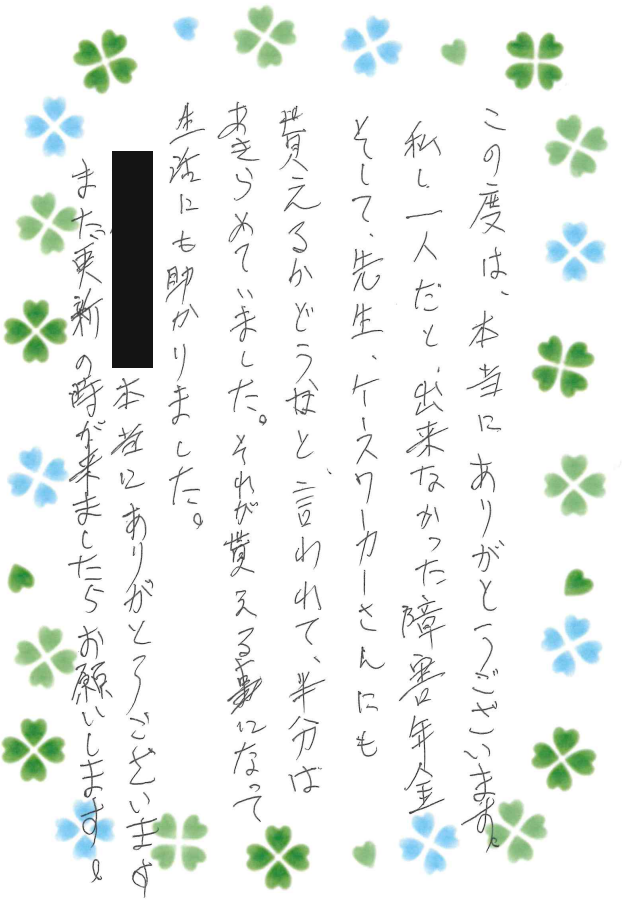 この度は、本当にありがとうございます。
私し一人だと、出来なかった障害年金
そして、先生、ケースワーカーさんにも
貰えるかどうかと、言われて、半分は
あきらめていました。それが貰える事になって
生活にも助かりました。
本当にありがとうございます
また更新の時が来ましたらお願いします。